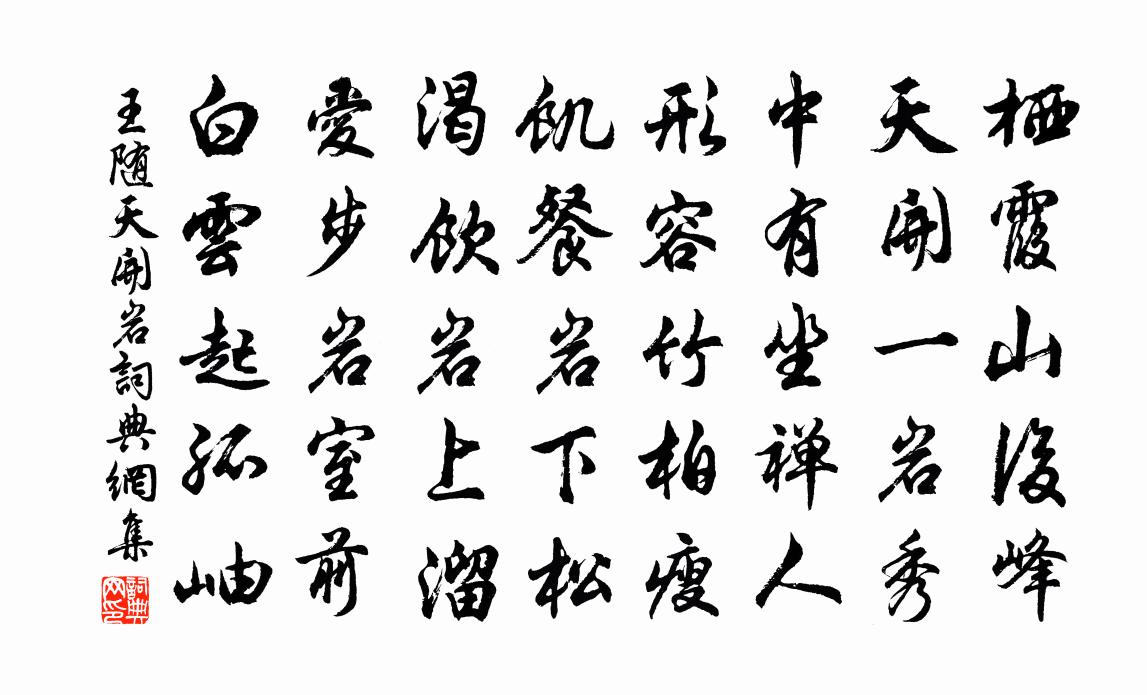 栖霞山後峰
天開一岩秀
中有坐禅人
形容竹柏瘦
飢餐岩下松
渴飲岩上溜
愛步岩室前
白雲起孤岫
王随天開岩詞典網集
詞典网印